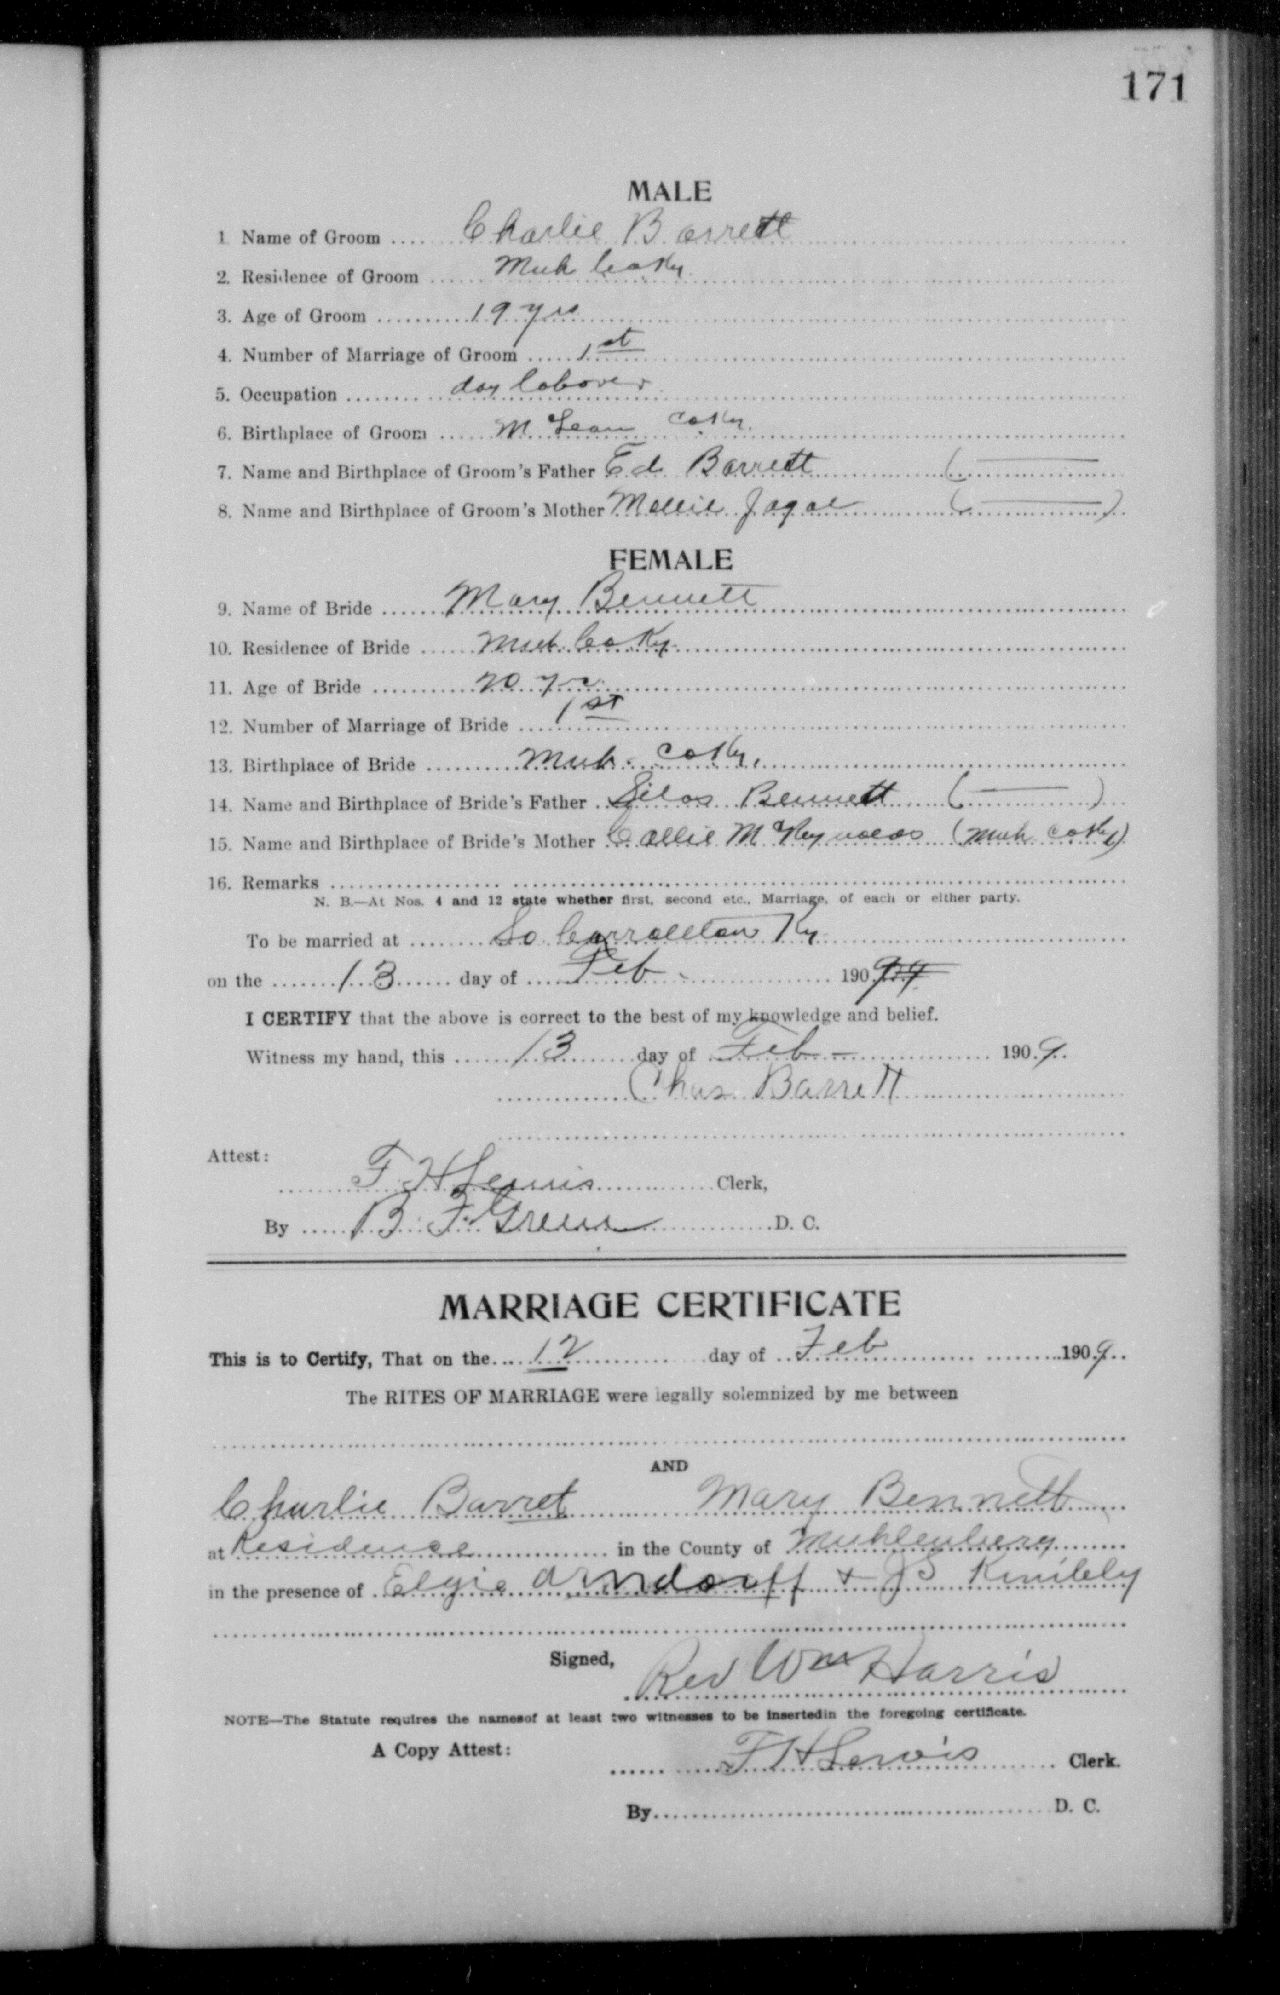 171
MALE
1 Name of Groom .... Charlie Barrett
2. Residence of Groom ...... Muh Co Ky.
3. Age of Groom .......... 19 yrs
4. Number of Marriage of Groom ..... 1st
5. Occupation ........ day laborer
6. Birthplace of Groom ..... McLean Co Ky.
7. Name and Birthplace of Groom's Father Ed Barrett (———
8. Name and Birthplace of Groom's Mother Mollie Jagoe (———)
FEMALE
9. Name of Bride ...... Mary Bennett
10. Residence of Bride ...... Muh Co Ky.
11. Age of Bride ........... 20 yrs
12. Number of Marriage of Bride .... 1st
13. Birthplace of Bride ......... Muh. Co Ky.
14. Name and Birthplace of Bride's Father .. Silas Bennett (———)
15. Name and Birthplace of Bride's Mother Callie McReynolds (Muh Co Ky)
16. Remarks
N. B.—At Nos. 4 and 12 state whether first, second etc., Marriage, of each or either party.
To be married at ........ So Carrollton Ky
on the ....... 13 ...... day of .... Feb. ........ 1909
I CERTIFY that the above is correct to the best of my knowledge and belief.
Witness my hand, this ...... 13 ...... day of Feb — ........ 1909.
Chas Barrett
Attest:
F. H Lewis ........ Clerk,
By ..... B. F. Green ........ D. C.
MARRIAGE CERTIFICATE
This is to Certify, That on the.... 12 ...... day of .. Feb ........ 1909..
The RITES OF MARRIAGE were legally solemnized by me between
AND
Charlie Barret Mary Bennett
at Residence ........ in the County of Muhlenberg
in the presence of Elgie Arndorff + JS Kimbley
Signed, Rev Wm Harris
NOTE—The Statute requires the namesof at least two witnesses to be insertedin the foregoing certificate.
A Copy Attest: ...... F H Lewis ...... Clerk.
By........ D. C.